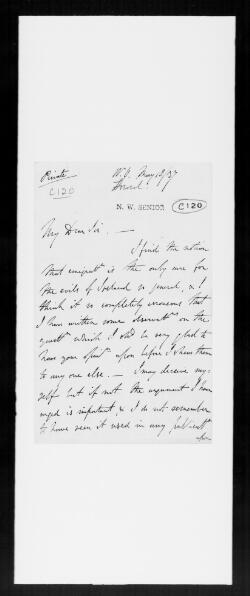 Private
C120
May 19/37
N. W. SENIOR
C120
My Dear Sir. —
I find the notion
that emigratn is the only cure for
the evils of Ireland so general, & I
think it so completely erroneous that
I have written some observatns on the
questn which I shd be very glad to
have your opinn upon before I shew them
to any one else. — I may deceive my-
self but if not the argument I have
urged is important, & I do not remember
to have seen it used in any publicatn